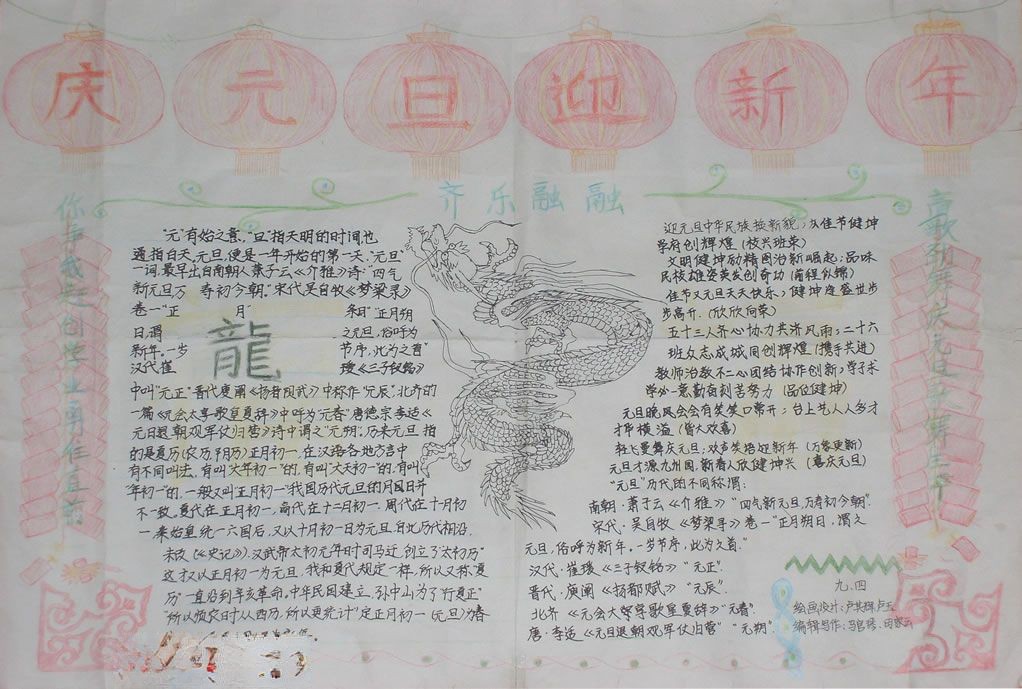 庆元旦迎新年
齐乐融融
你争我赶创学业勇往直前
"元"有始之意,"旦"指天明的时间,也
通指白天,元旦,便是一年开始的第一天."元旦"
一词,最早出自南朝人萧子云《介雅》诗:"四气
新元旦万 寿初今朝."宋代吴自牧《梦梁录》
卷一"正 月"条目"正月朔
日,谓 之元旦,俗呼为
新年,一岁 节序,此为之首"
龍
汉代崔 瑗《三子钗铭》
中叫"元正"晋代庾阐《扬都赋》中称作"元辰",北齐的
一篇《元会大享歌皇夏辞》中呼为"元春"唐德宗李适《
元日退朝观军仗归营》诗中谓之"元朔".历来元旦指
的是夏历(农历,阴历)正月初一,在汉语各地方言中
有不同叫法,有叫"大年初一"的,有叫"大天初一"的,有叫
"年初一"的,一般又叫"正月初一"我国历代元旦的月日并
不一致.夏代在正月初一,商代在十二月初一,周代在十月初
一,秦始皇统一六国后,又以十月初一日为元旦,自此历代相沿
未改《史记》).汉武帝太初元年时司马迁创立了"太初历"
这才又以正月初一为元旦,我和夏代规定一样,所以又称"夏
历"一直沿到辛亥革命.中华民国建立,孙中山为了"行夏正"
"所以顺农时从西历,所以更统计"定正月初一(元旦)为春
迎元旦中华民族换新貌;佳节健坤
学府创辉煌 (校兴班荣)
文明健坤励精图治新崛起;品味
民校雄姿英发创奇功 (前程似锦)
佳节又元旦天天快乐;健坤逢盛世步
步高升.(欣欣向荣)
五十三人齐心协力共济风雨;二十六
班众志成城同创辉煌 (携手共进)
教师治教不二心团结协作创新;学子求
学必一意勤奋刻苦努力 (品位健坤)
元旦晚风会会有笑笑口常开;台上艺人人多才
才华横溢 (皆大欢喜)
轻飞曼舞庆元旦,欢声笑语迎新年 (万象更新)
元旦才源九州圆,新春人欣健坤兴 (喜庆元旦)
"元旦"历代的不同称谓:
南朝·萧子云《介雅》 "四气新元旦,万寿初今朝".
宋代·吴自牧《梦梁录》卷一"正月朔日,谓之
元旦,俗呼为新年,一岁节序,此为之首."
汉代·崔瑗《三子钗铭》 "元正".
晋代·庾阐《扬都赋》 "元辰".
北齐《元会大享歌皇夏辞》 "元春".
唐·李适《元日退朝观军仗归营》 "元朔".
九.四
绘画设计:
编辑写作: